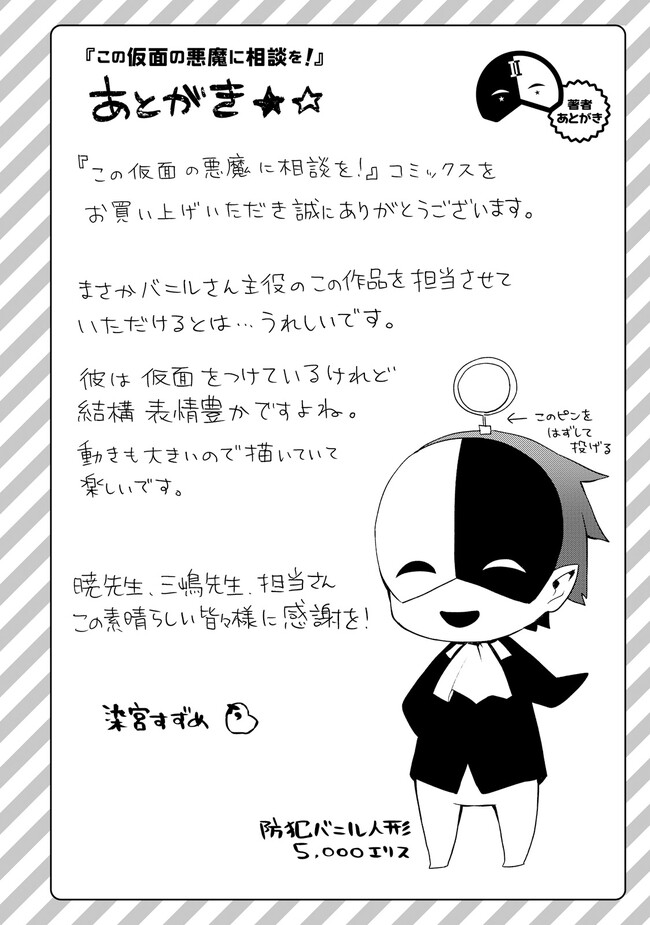 『この仮面の悪魔に相談を!』
あとがき★☆
II
著者
あとがき
『この仮面の悪魔に相談を!』コミックスを
お買い上げいただき誠にありがとうございます。
まさかバニルさん主役のこの作品を担当させて
いただけるとは…うれしいです。
彼は仮面をつけているけれど
結構表情豊かですよね。
動きも大きいので描いていて
楽しいです。
←このピンを
はずして
投げる
暁先生、三嶋先生、担当さん
この素晴らしい皆々様に感謝を!
染宮すずめ
防犯バニル人形
5,000エリス